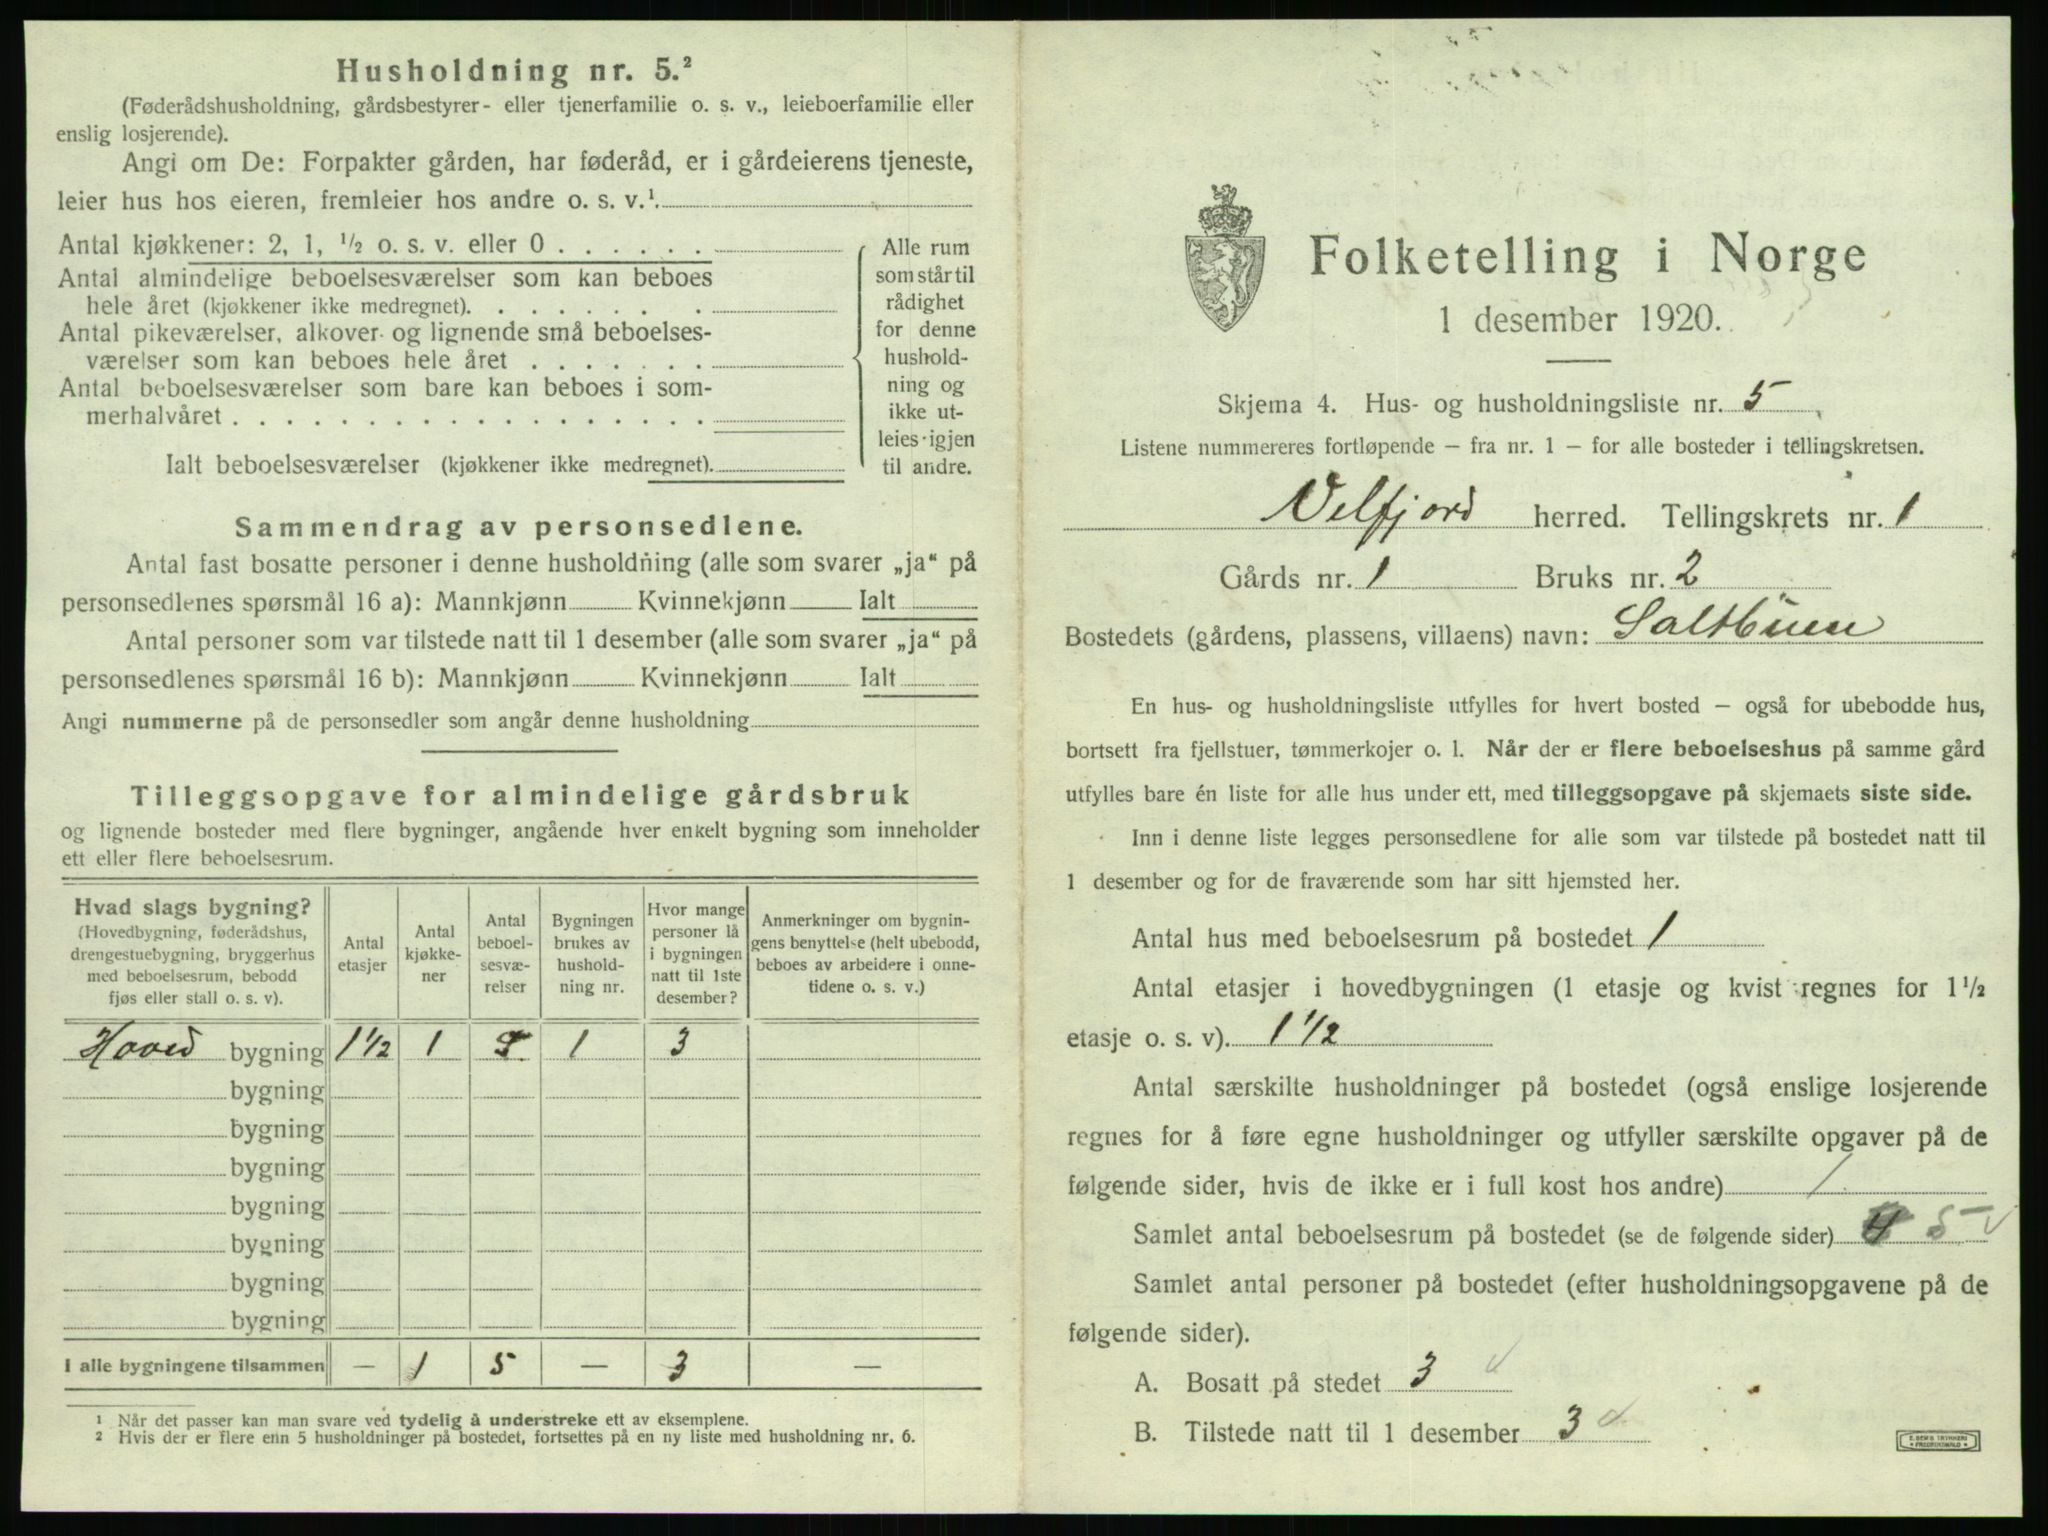 Husholdning nr. 5.²
(Føderådshusholdning, gårdsbestyrer- eller tjenerfamilie o. s. v., leieboerfamilie eller
enslig losjerende).
Angi om De: Forpakter gården, har føderåd, er i gårdeierens tjeneste,
leier hus hos eieren, fremleier hos andre o. s. v.¹.
Antal kjøkkener: 2, 1, ½ o. s. v. eller 0 . . . . . .
Antal almindelige beboelsesværelser som kan beboes
hele året (kjøkkener ikke medregnet). . . . . . .
Antal pikeværelser, alkover og lignende små beboelses-
værelser som kan beboes hele året . . . . . . .
Antal beboelsesværelser som bare kan beboes i som-
merhalvåret . . . . . . . . . . . . . . . . .
Ialt beboelsesværelser (kjøkkener ikke medregnet).
Alle rum
som står til
rådighet
for denne
hushold-
ning og
ikke ut-
leies igjen
til andre.
Sammendrag av personsedlene.
Antal fast bosatte personer i denne husholdning (alle som svarer „ja“ på
personsedlenes spørsmål 16 a): Mannkjønn Kvinnekjønn Ialt
Antal personer som var tilstede natt til 1 desember (alle som svarer „ja“ på
personsedlenes spørsmål 16 b): Mannkjønn Kvinnekjønn Ialt
Angi nummerne på de personsedler som angår denne husholdning
Tilleggsopgave for almindelige gårdsbruk
og lignende bosteder med flere bygninger, angående hver enkelt bygning som inneholder
ett eller flere beboelsesrum.
Hvad slags bygning?
(Hovedbygning, føderådshus,
drengestuebygning, bryggerhus
med beboelsesrum, bebodd
fjøs eller stall o. s. v).
Antal
etasjer
Antal
kjøkke-
ner
Antal
beboel-
sesvæ-
relser
Bygningen
brukes av
hushold-
ning nr.
Hvor mange
personer lå
i bygningen
natt til 1ste
desember?
Anmerkninger om bygnin-
gens benyttelse (helt ubebodd,
beboes av arbeidere i onne-
tidene o. s. v.)
Hoved bygning 1½ 1 5 1 3
bygning
bygning
bygning
bygning
bygning
bygning
bygning
I alle bygningene tilsammen — 1 5 — 3 —
¹ Når det passer kan man svare ved tydelig å understreke ett av eksemplene.
² Hvis der er flere enn 5 husholdninger på bostedet, fortsettes på en ny liste med husholdning nr. 6.
Folketelling i Norge
1 desember 1920.
Skjema 4. Hus- og husholdningsliste nr. 5
Listene nummereres fortløpende – fra nr. 1 – for alle bosteder i tellingskretsen.
Velfjord herred. Tellingskrets nr. 1
Gårds nr. 1 Bruks nr. 2
Bostedets (gårdens, plassens, villaens) navn: Saltbuen
En hus- og husholdningsliste utfylles for hvert bosted – også for ubebodde hus,
bortsett fra fjellstuer, tømmerkojer o. l. Når der er flere beboelseshus på samme gård
utfylles bare én liste for alle hus under ett, med tilleggsopgave på skjemaets siste side.
Inn i denne liste legges personsedlene for alle som var tilstede på bostedet natt til
1 desember og for de fraværende som har sitt hjemsted her.
Antal hus med beboelsesrum på bostedet 1
Antal etasjer i hovedbygningen (1 etasje og kvist regnes for 1½
etasje o. s. v). 1½
Antal særskilte husholdninger på bostedet (også enslige losjerende
regnes for å føre egne husholdninger og utfyller særskilte opgaver på de
følgende sider, hvis de ikke er i full kost hos andre) 1
Samlet antal beboelsesrum på bostedet (se de følgende sider) 4 5 ✓
Samlet antal personer på bostedet (efter husholdningsopgavene på de
følgende sider).
A. Bosatt på stedet 3 ✓
B. Tilstede natt til 1 desember 3 ✓